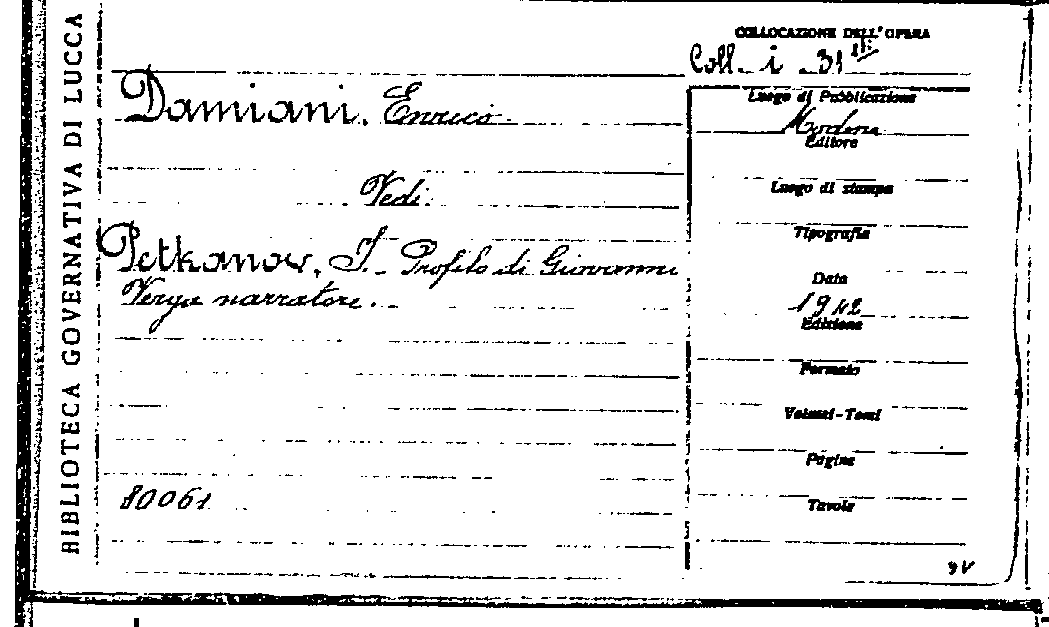 BIBLIOTECA GOVERNATIVA DI LUCCA
COLLOCAZIONE DELL'OPERA
Coll. i 31
Damiani, Enrico.
Luogo di Pubblicazione
Modena
Editore
Vedi.
Luogo di stampa
Tipografia
Petkanov, I. - Profilo di Giovanni
Verga narratore.
Data
1942
Edizione
Formato
Volumi-Tomi
Pagine
80061
Tavole